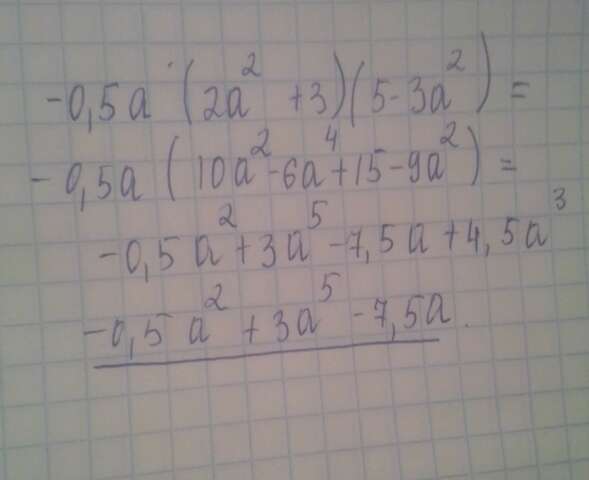 -0,5a (2a² +3)(5-3a²) =
-0,5a (10a²-6a⁴+15-9a²) =
-0,5a²+3a⁵-7,5a+4,5a³
-0,5a²+3a⁵-7,5a.